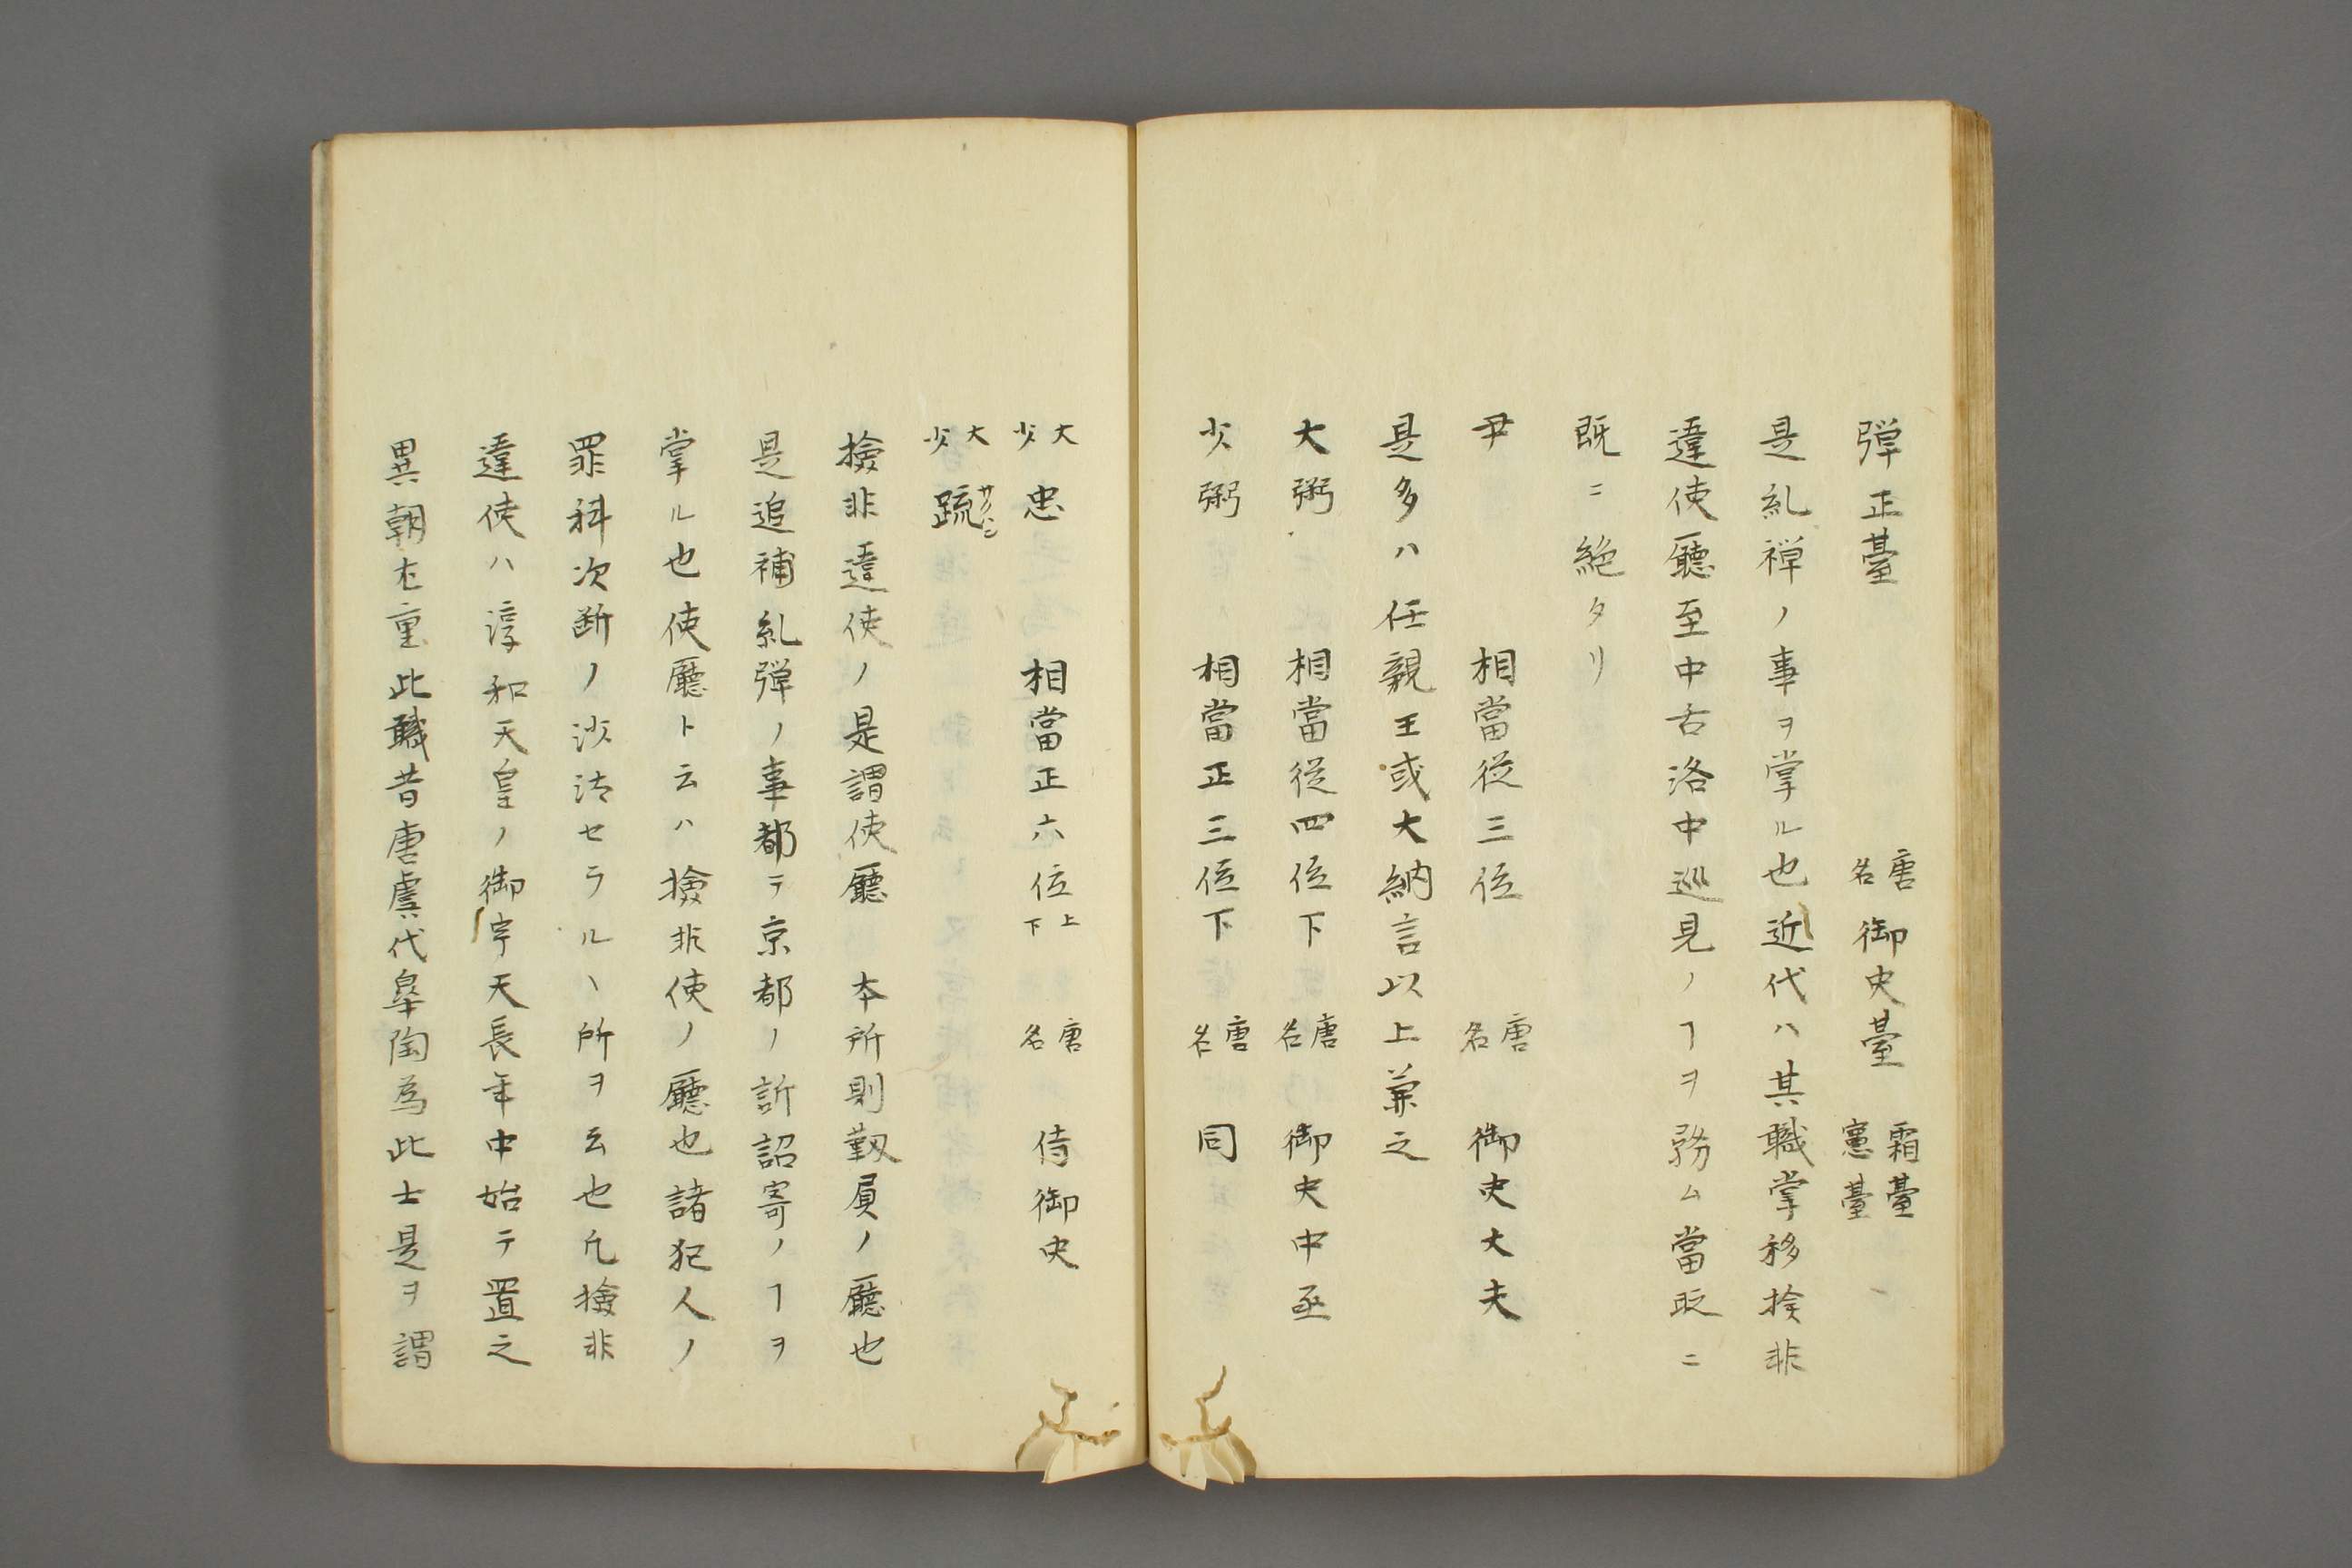 弾正臺　唐名　御史臺　霜臺　憲臺
是糺禅ノ事ヲ掌ル也近代ハ其職掌移捡非
違使廳至中古洛中巡見ノヿヲ務ム當時ニ
既ニ絶タリ
尹　相當従三位　唐名　御史大夫
是多ハ任親王或大納言以上兼之
大弼　相當従四位下　唐名　御史中丞
少弼　相當正三位下　唐名　同
大少忠　相當正六位上下　唐名　侍御史
大少疏サクハン
撿非違使ノ是謂使廳　本所則靫屓ノ廳也
是追補糺弾ノ事都テ京都ノ訴詔寄ノヿヲ
掌ル也使廳ト云ハ撿非使ノ廳也諸犯人ノ
罪科次断ノ沙法セラルヽ所ヲ云也凢撿非
違使ハ淳和天皇ノ御宇天長年中始テ置之
異朝尤重此職昔唐虞代皋陶為此士是ヲ謂